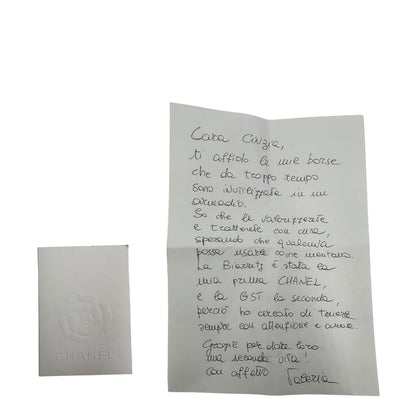 Cara Cinzia,
ti affido le mie borse
che da troppo tempo
sono inutilizzate in un
armadio.
So che le valorizzerete
e tratterete con cura,
sperando che qualcuna
possa usarle come meritano.
La Biarritz è stata la
mia prima CHANEL,
e la GST la seconda,
perciò ho cercato di tenerle
sempre con attenzione e amore.
Grazie per dare loro
una seconda vita!
con affetto
Valeria
CHANEL